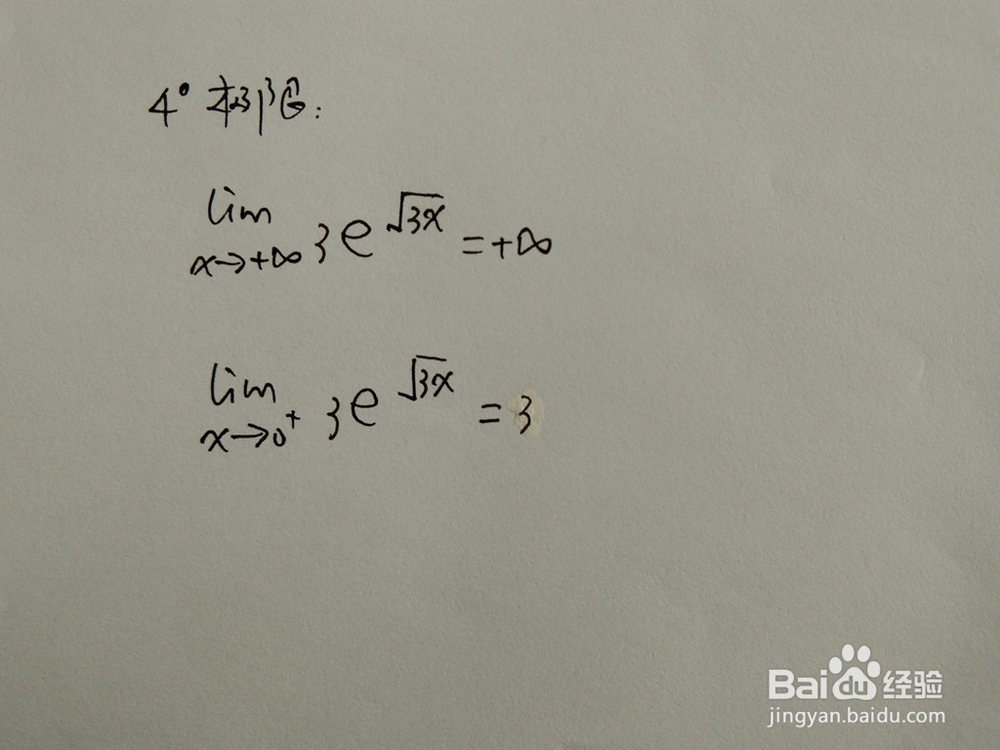 4° 极限:
lim x→+∞ 3e^√3x = +∞
lim x→0⁺ 3e^√3x = 3
Baidu经验
jingyan.baidu.com